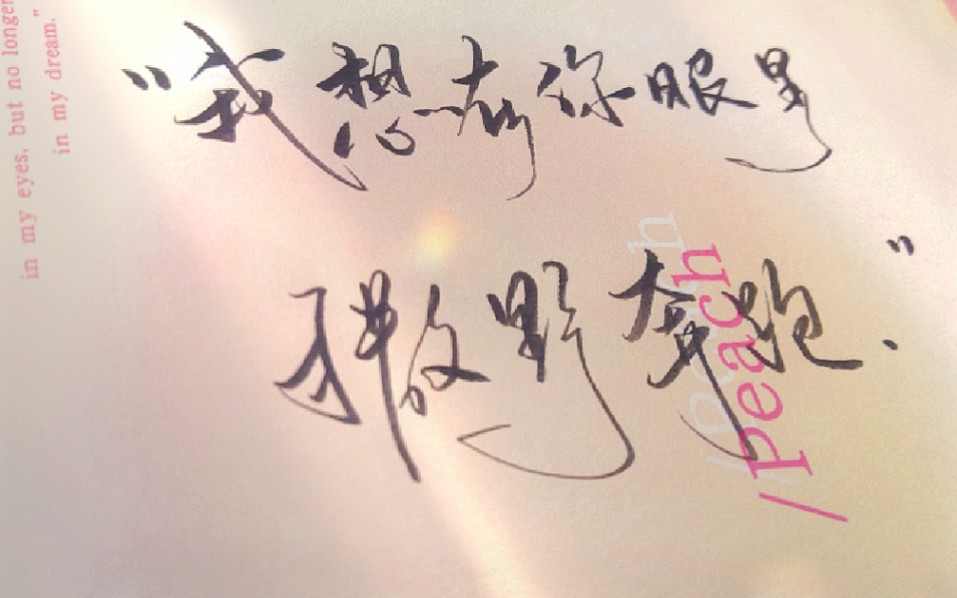 in my eyes, but no longer
in my dream.”
“我想在你眼里
撒野奔跑.”
/Peach
/Peach